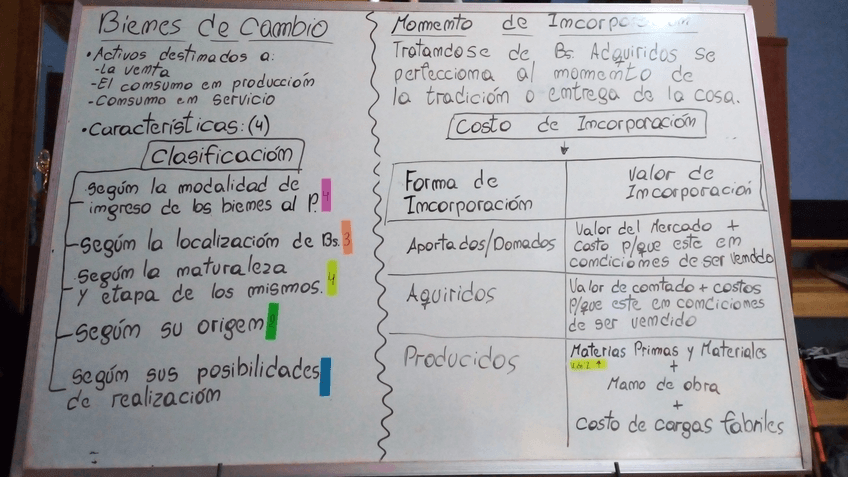 Bienes de Cambio
•Activos destinados a:
-La venta
-El consumo en producción
-Consumo en servicio
•Características: (4)
Clasificación
Según la modalidad de
ingreso de los bienes al P. 4
Según la localización de Bs. 3
Según la naturaleza
y etapa de los mismos. 4
Según su origen
Según sus posibilidades
de realización
Momento de Incorporación
Tratandose de Bs. Adquiridos se
perfecciona al momento de
la tradición o entrega de la cosa.
Costo de Incorporación
Forma de
Incorporación
Valor de
Incorporación
Aportados/Donados
Valor del Mercado +
Costo p/que este en
condiciones de ser vendido
Aquiridos
Valor de contado + costos
p/que este en condiciones
de ser vendido
Producidos
Materias Primas y Materiales
+
Mano de obra
+
Costo de cargas fabriles